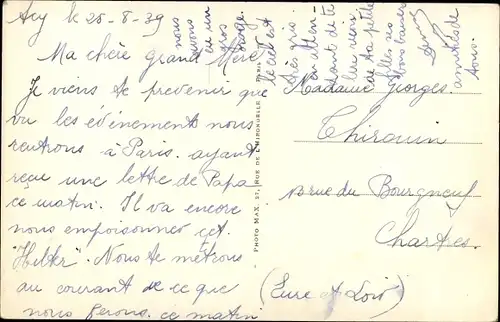 Acy le 28-8-39
Ma chère grand Mère
Je viens te prevenir que
vu les événements nous
rentrons à Paris. ayant
reçue une lettre de Papa
ce matin. Il va encore
nous empoisonner cet
"Hitler". Nous te metrons
au courant de ce que
nous ferons. ce matin
nous
avons
eu un
gros
orage.
le ciel est
très gris
en atten-
dant de te
lire reçois
de ta petite
fille ses
bons baisers
amitiés de
tous.
PHOTO MAX, 27, RUE DE L'HIRONDELLE, PARIS
Madame Georges.
Thirouin
rue du Bourgneuf
Chartres.
(Eure et Loir)